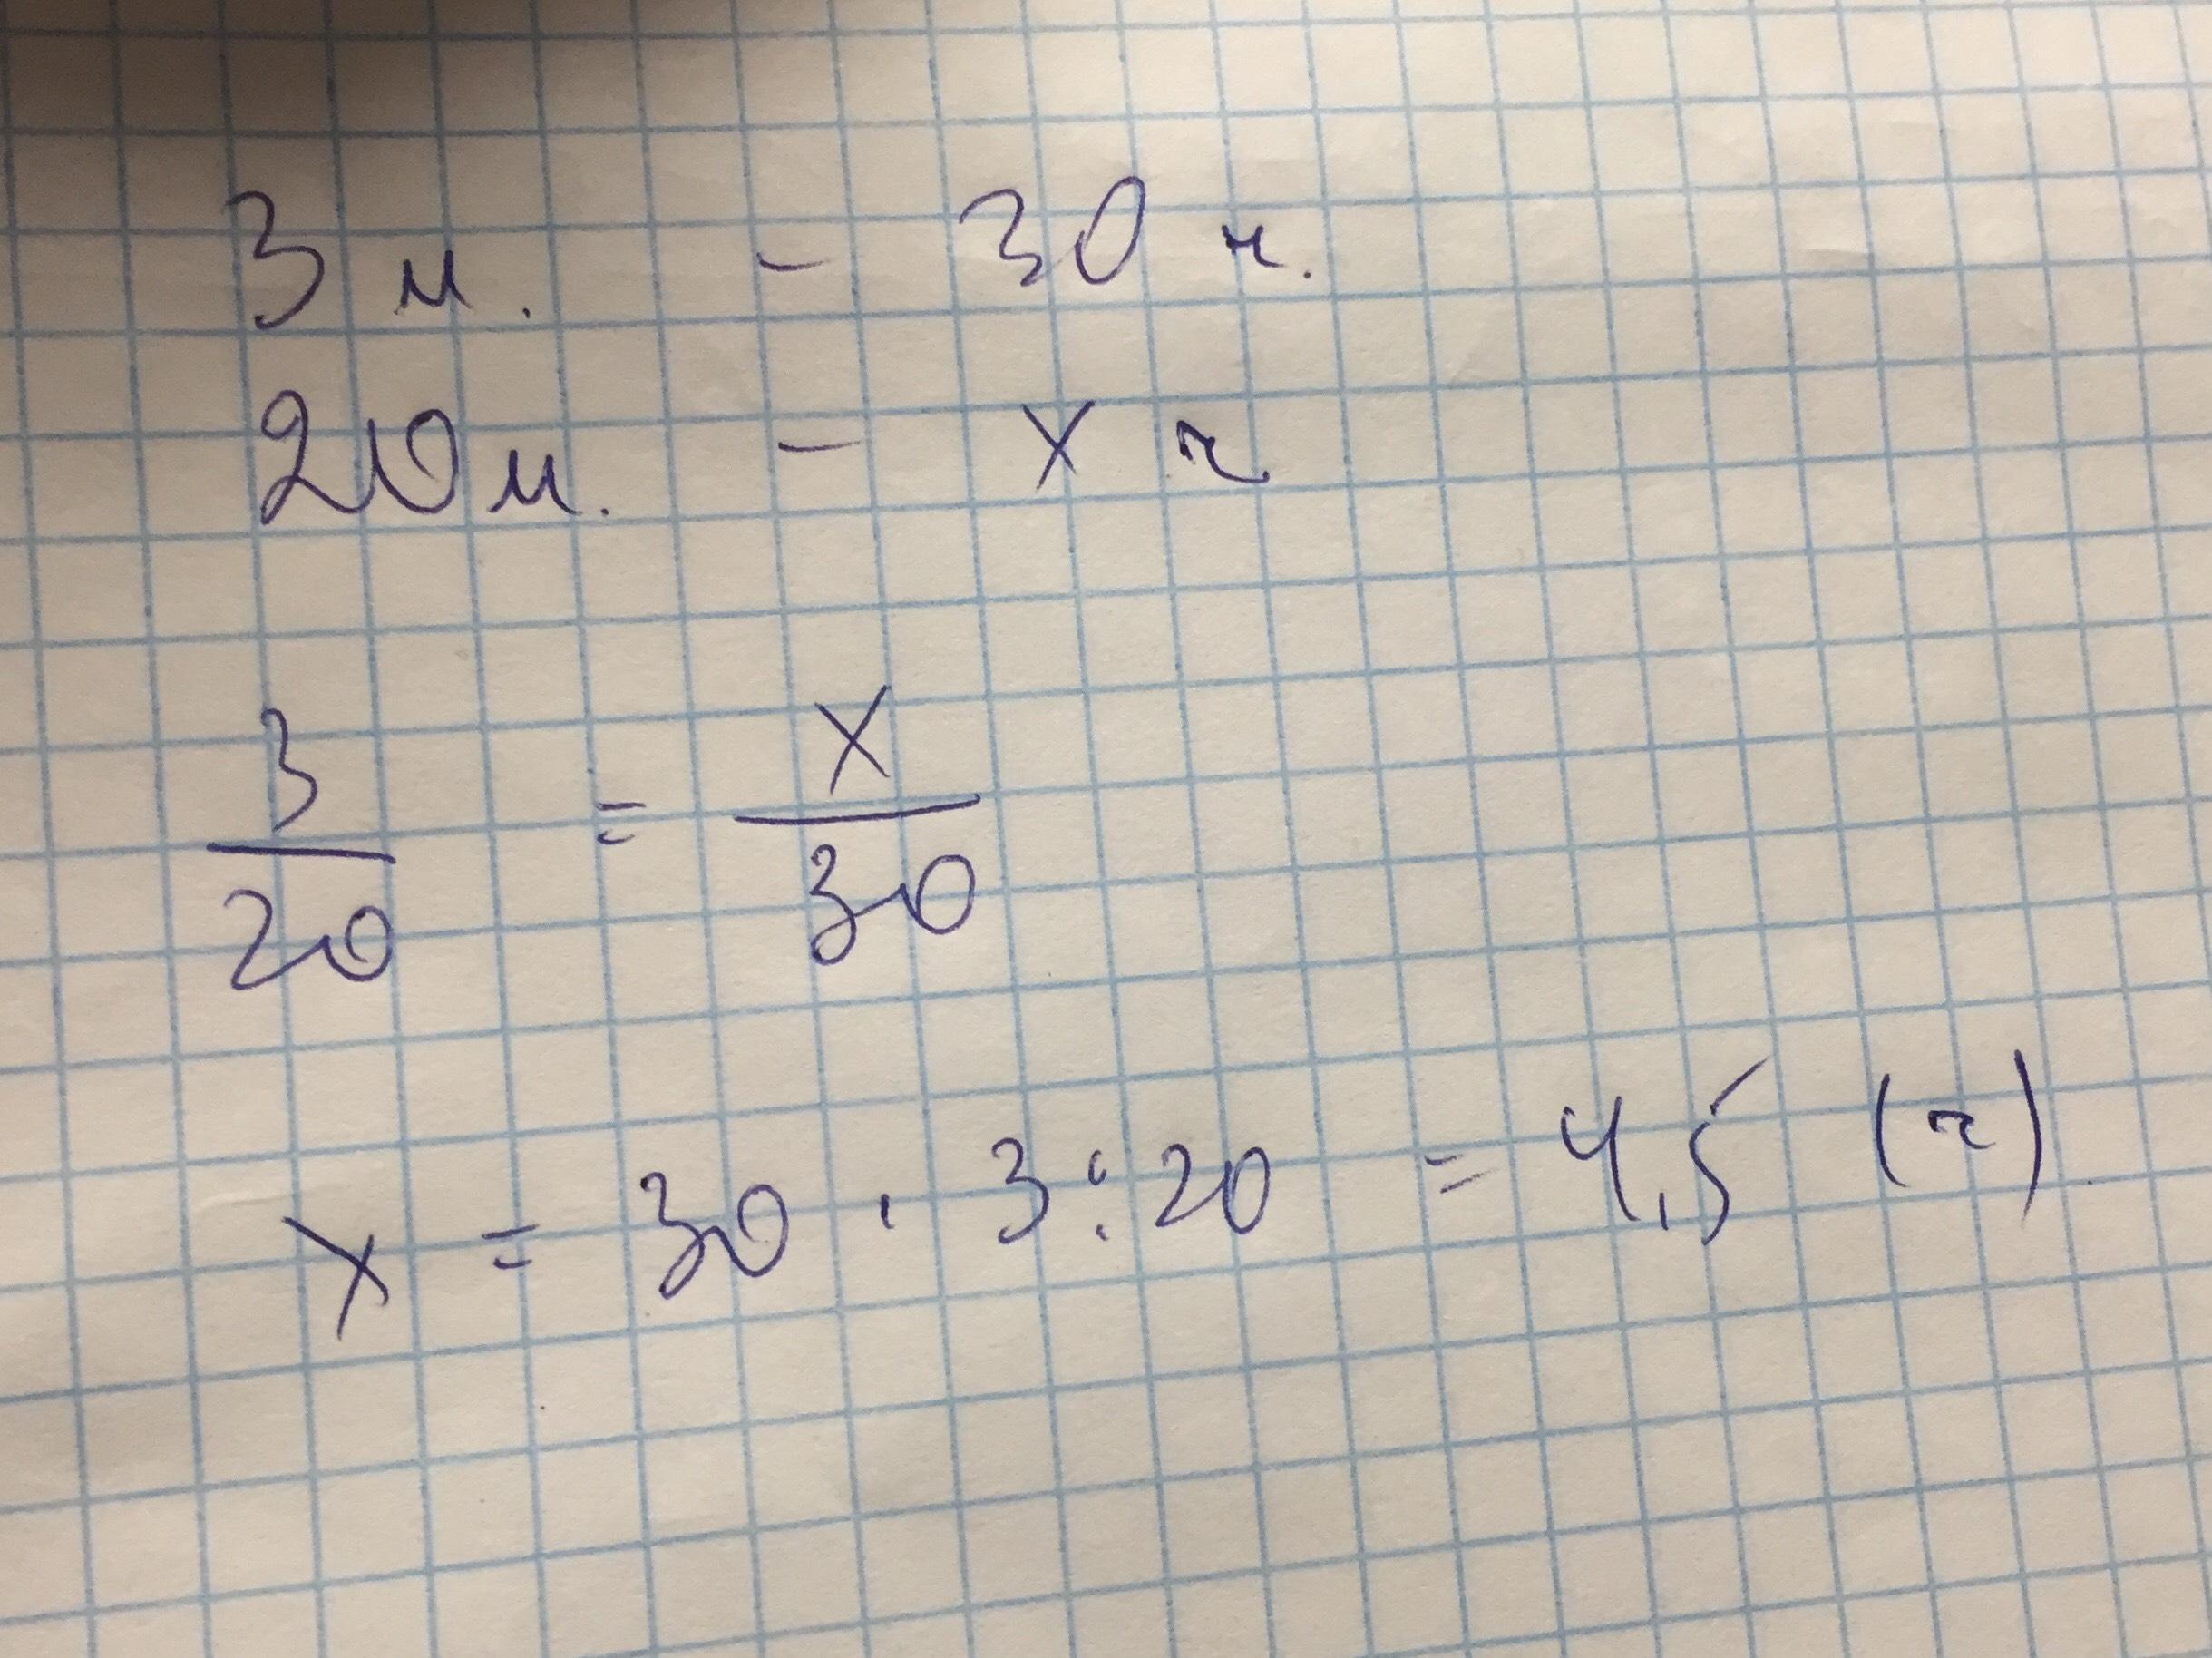 3 м. - 30 ч.
20 м. - х ч
3/20 = х/30
х = 30 · 3 : 20 = 4,5 (ч)